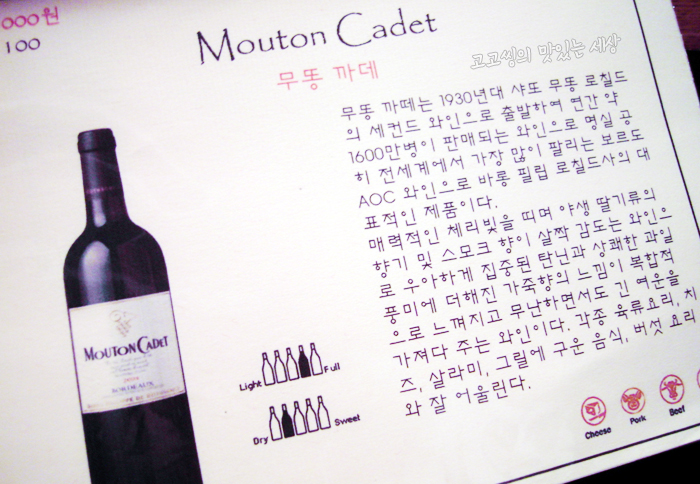 000원
100
Mouton Cadet
고고씽의 맛있는 세상
무똥 까데
무똥 까떼는 1930년대 샤또 무똥 로칠드
의 세컨드 와인으로 출발하여 연간 약
1600만병이 판매되는 와인으로 명실 공
히 전세계에서 가장 많이 팔리는 보르도
AOC 와인으로 바롱 필립 로칠드사의 대
표적인 제품이다.
매력적인 체리빛을 띠며 야생 딸기류의
향기 및 스모크 향이 살짝 감도는 와인으
로 우아하게 집중된 탄닌과 상쾌한 과일
풍미에 더해진 가죽향의 느낌이 복합적
으로 느껴지고 무난하면서도 긴 여운을
가져다 주는 와인이다. 각종 육류요리, 치
즈, 살라미, 그릴에 구운 음식, 버섯 요리
와 잘 어울린다.
MOUTON CADET
BORDEAUX
Light Full
Dry Sweet
Cheese Pork Beef